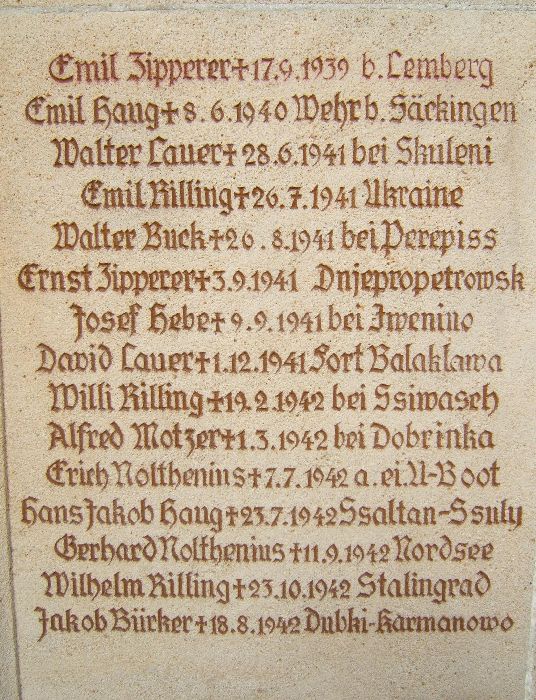 Emil Zipperer ✝ 17.9.1939 b. Lemberg
Emil Haug ✝ 8.6.1940 Wehr b. Säckingen
Walter Lauer ✝ 28.6.1941 bei Skuleni
Emil Rilling ✝ 26.7.1941 Ukraine
Walter Buck ✝ 26.8.1941 bei Perepiss
Ernst Zipperer ✝ 3.9.1941 Dnjepropetrowsk
Josef Hebe ✝ 9.9.1941 bei Iwenino
David Lauer ✝ 1.12.1941 Fort Balaklawa
Willi Rilling ✝ 19.2.1942 bei Ssiwasch
Alfred Motzer ✝ 1.3.1942 bei Dobrinka
Erich Nolthenius ✝ 7.7.1942 a. ei. U-Boot
Hans Jakob Haug ✝ 23.7.1942 Ssaltan-Ssuly
Gerhard Nolthenius ✝ 11.9.1942 Nordsee
Wilhelm Rilling ✝ 23.10.1942 Stalingrad
Jakob Bürker ✝ 18.8.1942 Dubki-Karmanowo